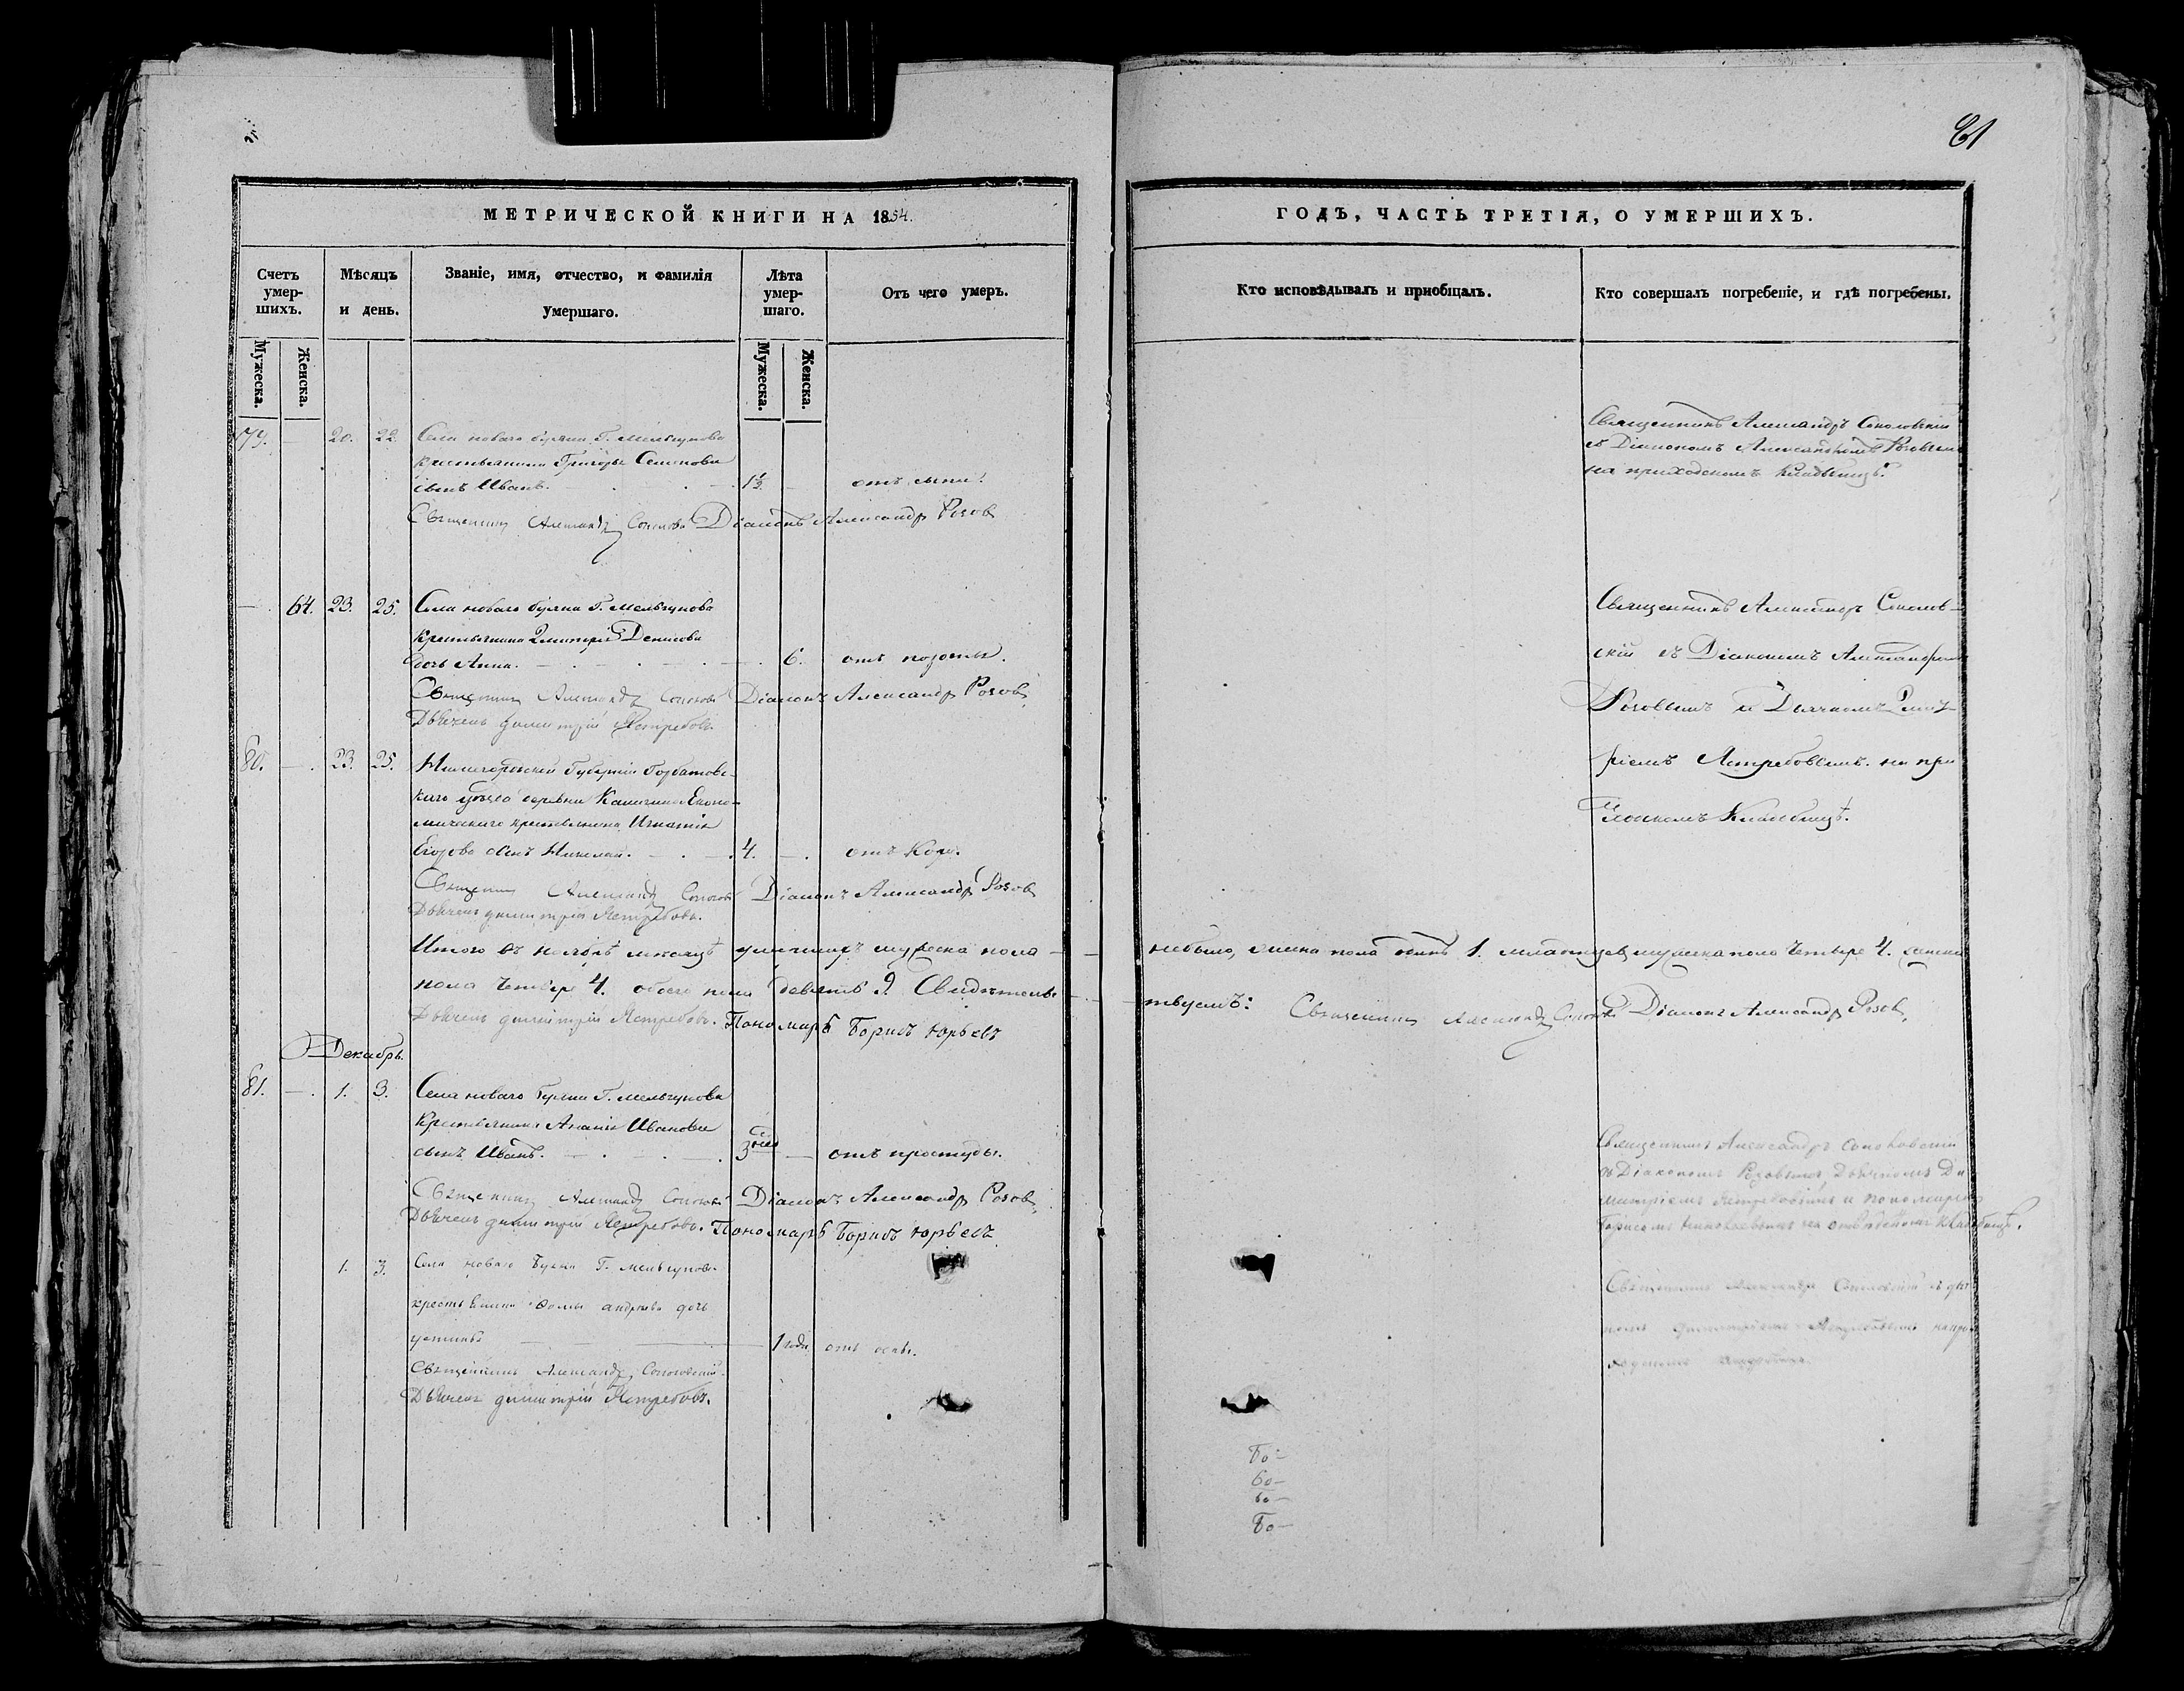 61
МЕТРИЧЕСКОЙ КНИГИ НА 1854.
Счетъ умер-шихъ.
Мѣсяцъ и день.
Званіе, имя, отчество, и фамилія умершаго.
Лѣта умер-шаго.
Отъ чего умеръ.
Мужеска.
Женска.
Мужеска.
Женска.
79. — 20. 22. Села новаго буяна Г. Мельгунова
крестьянина Григорья Семенова
сынъ Иванъ. 1½ — отъ
Священникъ Александръ Діаконъ Александръ Розовъ
— 64. 23. 25. Села новаго буяна Г. Мельгунова
крестьянина Димитрія Денисова
дочь Анна. 6. отъ
Священникъ Александръ Діаконъ Александръ Розовъ
Дьячекъ димитрій Ястребовъ.
80. — 23. 25. Нижегородской Губерніи Горбатовс-
каго уѣзда деревни Эконо-
мическаго крестьянина Игнатія
Егорова сынъ Николай. 4. — отъ
Священникъ Александръ Діаконъ Александръ Розовъ
Дьячекъ димитрій Ястребовъ.
Итого въ ноябрѣ мѣсяцѣ умершихъ мужеска пола —
пола четыре 4. обоего пола девять 9. Свидѣтельс-
Дьячекъ димитрій Ястребовъ. Пономарь Борисъ Юрьевъ
Декабрь.
81. — 1. 3. Села новаго буяна Г. мельгунова
Крестьянина Ананія Иванова
сынъ Иванъ. — отъ простуды.
Священникъ Александръ Діаконъ Александръ Розовъ
Дьячекъ димитрій Ястребовъ. Пономарь Борисъ Юрьевъ
1. 3. Села новаго Буяна Г. мельгунова
крестьянина андреева дочь
устинья 1 годъ отъ оспы.
Священникъ Александръ Соколовскій
Дьячекъ димитрій Ястребовъ.
ГОДЪ, ЧАСТЬ ТРЕТІЯ, О УМЕРШИХЪ.
Кто исповѣдывалъ и пріобщалъ.
Кто совершалъ погребеніе, и гдѣ погребены.
Священникъ Александръ Соколовскій
съ Діакономъ Александромъ Розовымъ
на приходскомъ кладбищѣ.
Священникъ Александръ Соколов-
скій съ Діакономъ Александромъ
Розовымъ и Дьячкомъ Димит-
ріемъ Ястребовымъ на при-
Кладбищѣ.
небыло, женска пола одна 1. младенцевъ мужеска пола четыре 4. женска
твуемъ: Священникъ Александръ Діаконъ Александръ Розовъ
Священникъ Александръ Соколовскій
съ Діакономъ Розовымъ Дьячкомъ Ди-
митріемъ Ястребовымъ и пономаремъ
Борисомъ на кладбищѣ.
Священникъ Александръ Соколовскій съ дьяч-
комъ димитріемъ Ястребовымъ
Бо—
бо—
бо—
Бо—